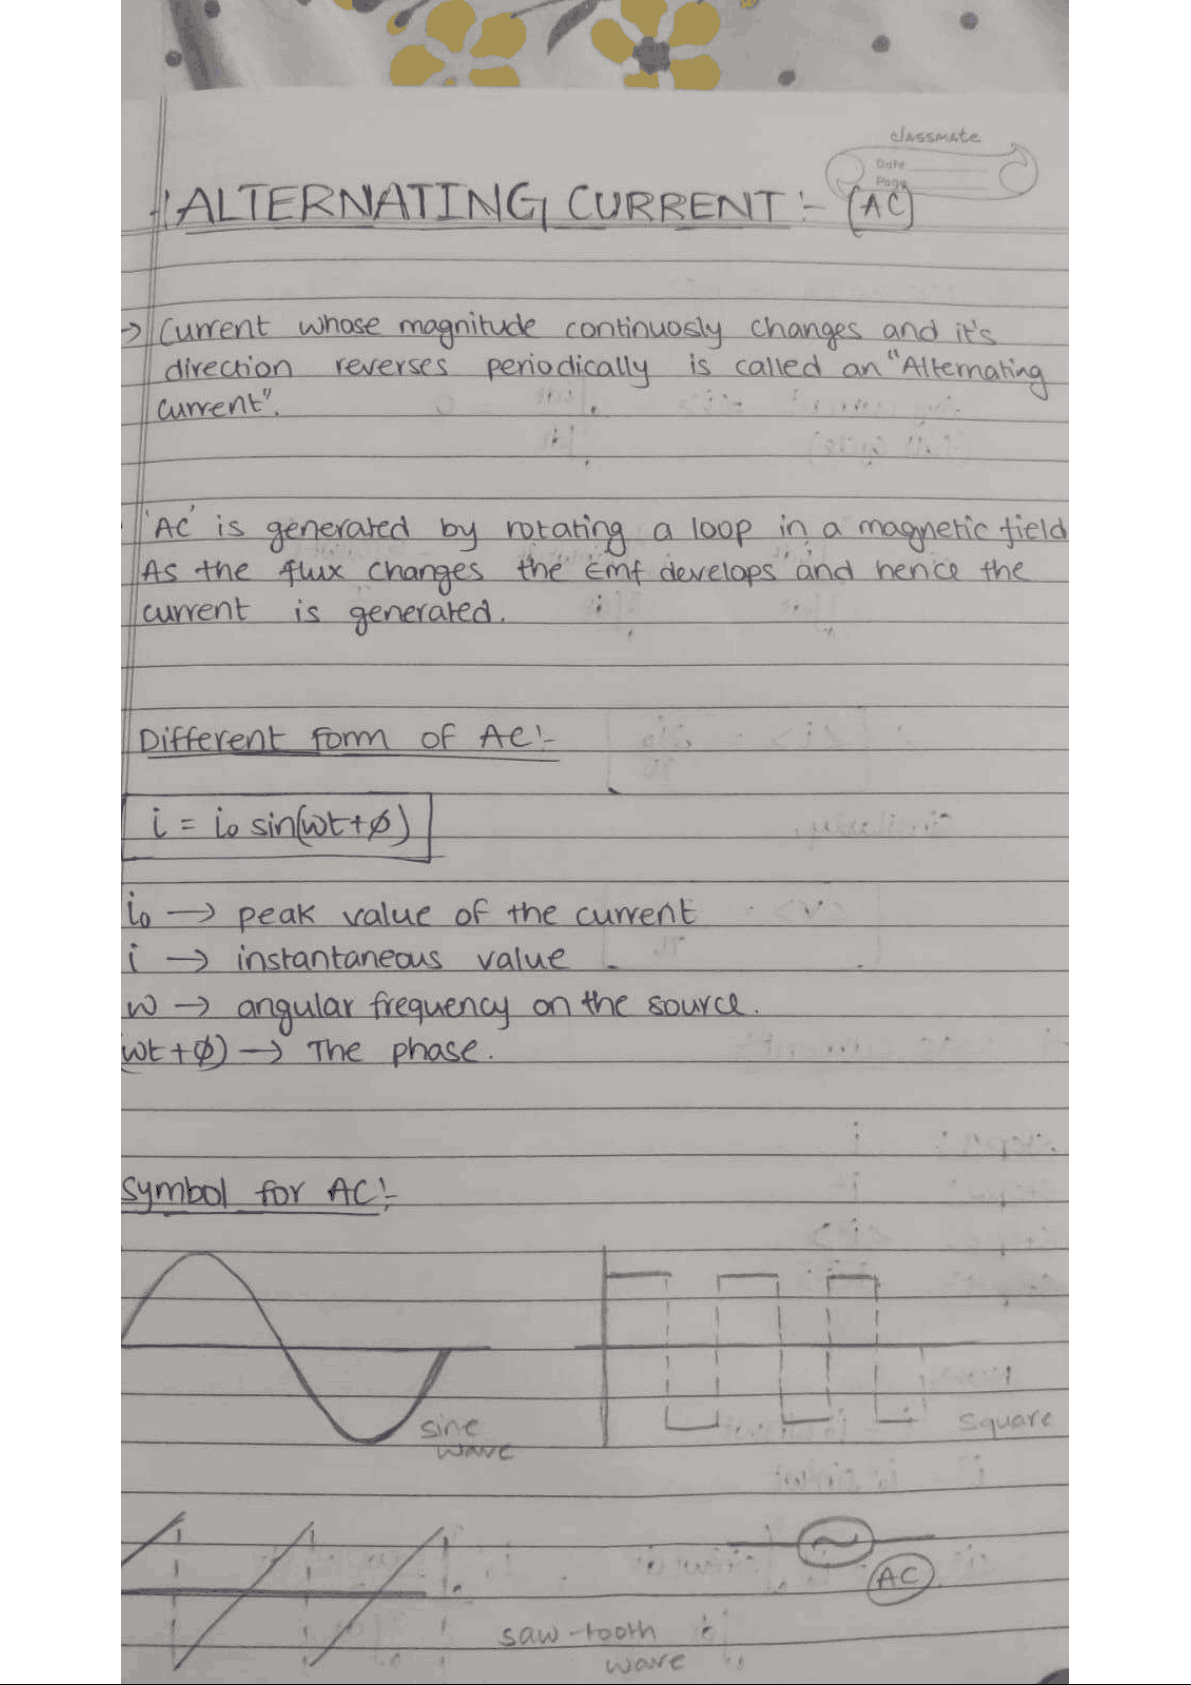 classmate
Date
Page
ALTERNATING CURRENT :- (AC)
→ Current whose magnitude continuosly changes and it's
direction reverses periodically is called an "Alternating
current".
'AC' is generated by rotating a loop in a magnetic field
As the flux changes the Emf develops and hence the
current is generated.
Different form of AC:-
i = i₀ sin(ωt+ϕ)
i₀ → peak value of the current
i → instantaneous value
ω → angular frequency on the source.
(ωt+ϕ) → The phase.
Symbol for AC:-
sine
wave
square
AC
saw-tooth
wave